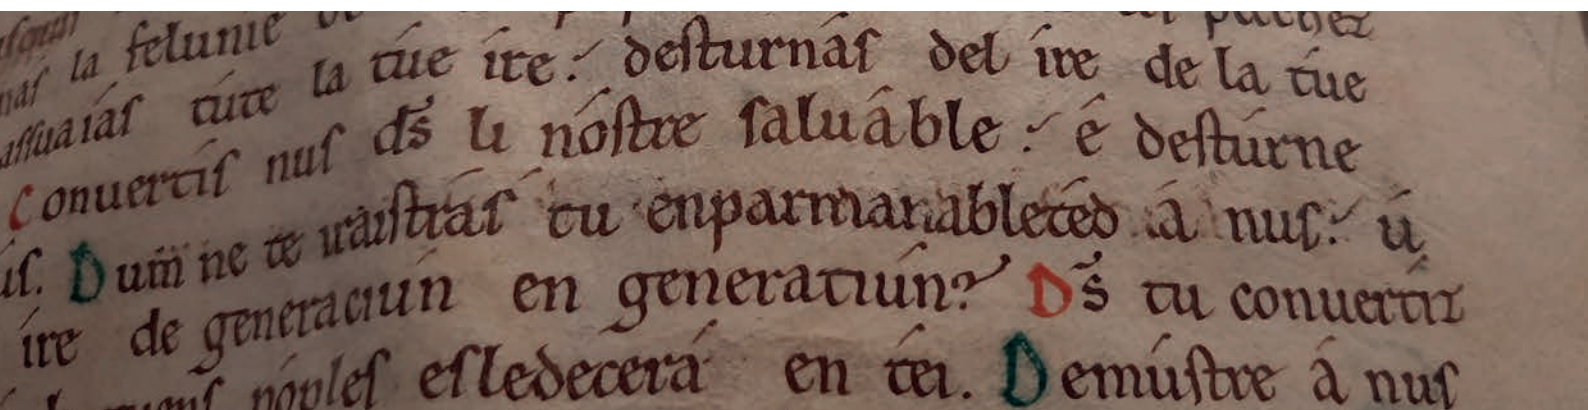 la felunie
assuaias tute la tue ire: desturnas del ire de la tue
Conuertis nus ds̄ li nóstre saluáble: é destúrne
Dum̄ ne te iráistrás tu enparmanabletéd á nus: ú
ire de generaciún en generatiún? Ds̄ tu conuertiz
póples esledecerá en téi. Demústre á nus